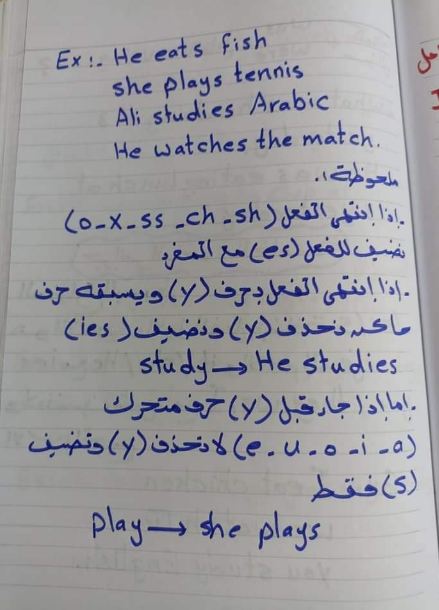 Ex:- He eats fish
she plays tennis
Ali studies Arabic
He watches the match.
ملحوظة:.
.إذا إنتهى الفعل (o-x-ss-ch-sh)
نضيف للفعل (es) مع المفرد
.إذا إنتهى الفعل بحرف (y) ويسبقه حرف
ساكن نحذف (y) ونضيف (ies)
study → He studies
.إما إذا جاء قبل (y) حرف متحرك
(e-u-o-i-a) لا نحذف (y) ونضيف
(s) فقط
play → she plays